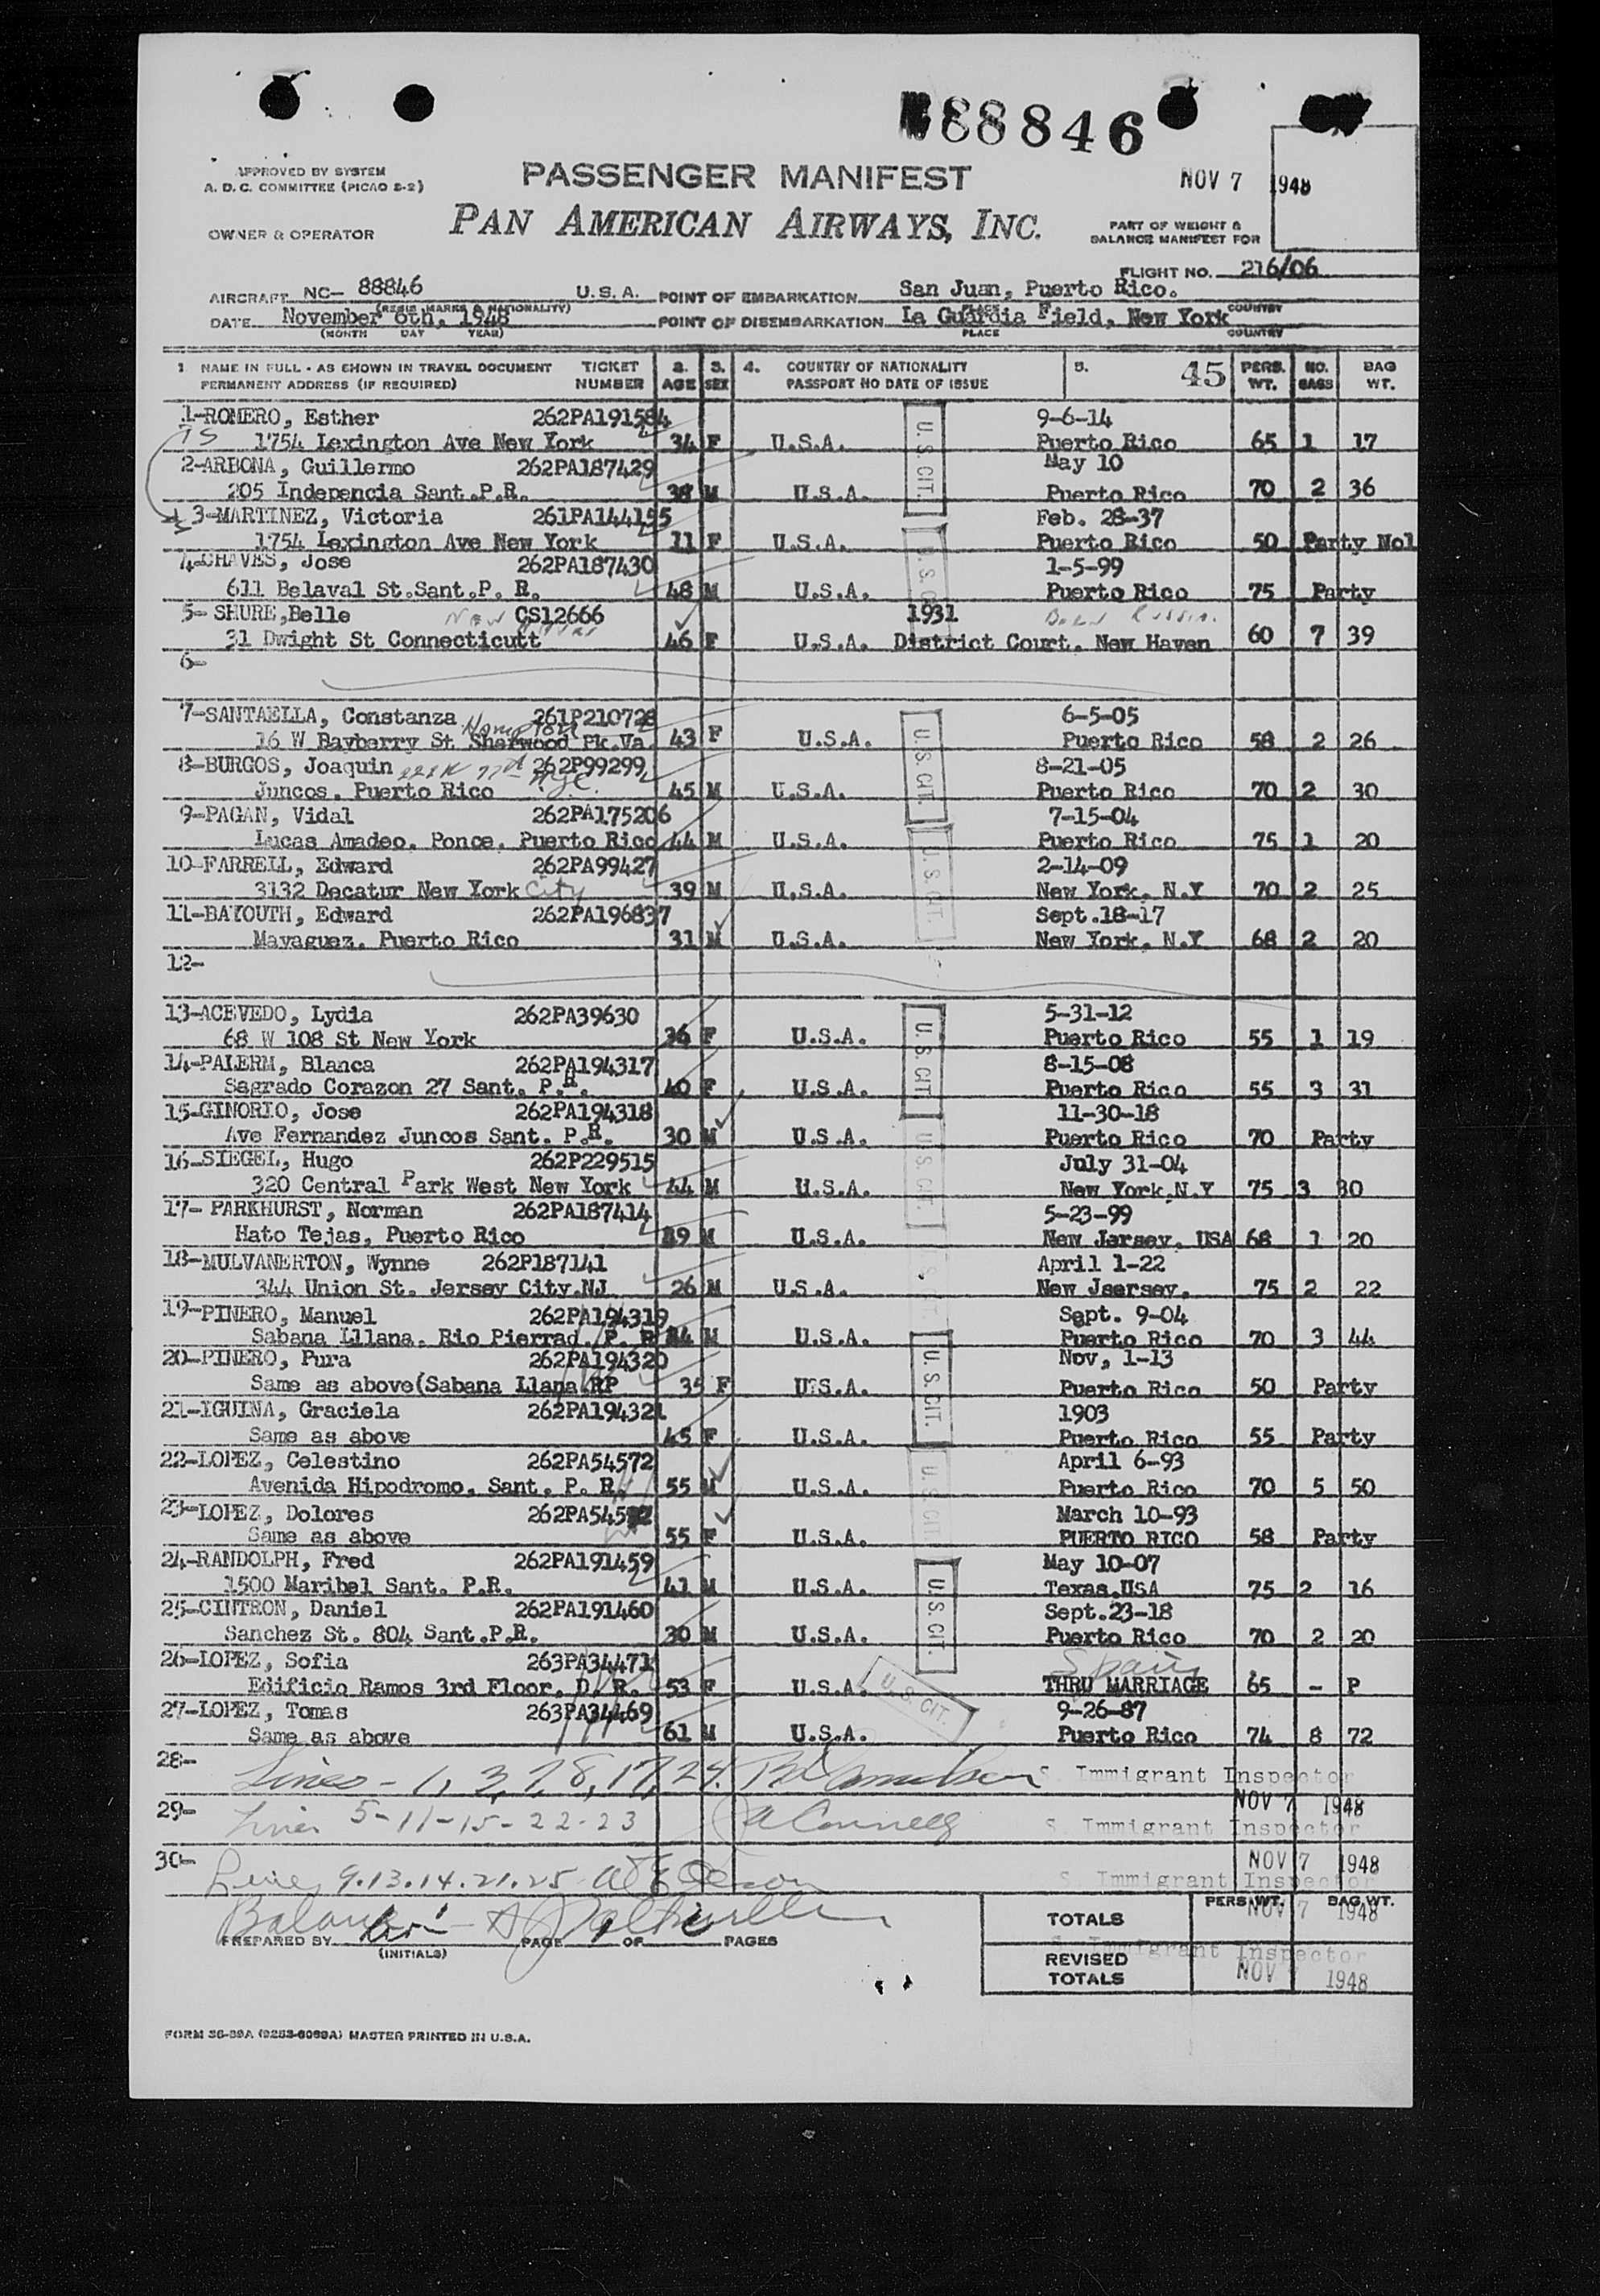 88846
APPROVED BY SYSTEM
A. D. C. COMMITTEE (PICAO 2-2)
PASSENGER MANIFEST
NOV 7 1948
OWNER & OPERATOR
PAN AMERICAN AIRWAYS, INC.
PART OF WEIGHT &
BALANCE MANIFEST FOR
FLIGHT NO. 216/06
AIRCRAFT NC- 88846 U.S.A. POINT OF EMBARKATION San Juan, Puerto Rico.
(REGIS MARKS & NATIONALITY) PLACE COUNTRY
DATE November 6th, 1948 POINT OF DISEMBARKATION La Guardia Field, New York
(MONTH DAY YEAR) PLACE COUNTRY
1 NAME IN FULL - AS SHOWN IN TRAVEL DOCUMENT TICKET 2. 3. 4. COUNTRY OF NATIONALITY 5. 45 PERS. NO. BAG
PERMANENT ADDRESS (IF REQUIRED) NUMBER AGE SEX PASSPORT NO DATE OF ISSUE WT. BAGS WT.
1-ROMERO, Esther 262PA191584 9-6-14
1754 Lexington Ave New York 34 F U.S.A. U.S. CIT. Puerto Rico 65 1 17
2-ARBONA, Guillermo 262PA187429 May 10
205 Indepencia Sant.P.R. 38 M U.S.A. Puerto Rico 70 2 36
3-MARTINEZ, Victoria 261PA144155 Feb. 28-37
1754 Lexington Ave New York 11 F U.S.A. Puerto Rico 50 Party No1
4-CHAVES, Jose 262PA187430 1-5-99
611 Belaval St.Sant.P. R. 48 M U.S.A. Puerto Rico 75 Party
5- SHURE,Belle New CS12666 1931 Born Russia.
31 Dwight St Connecticutt 46 F U.S.A. District Court. New Haven 60 7 39
6-
7-SANTAELLA, Constanza 261P210728 6-5-05
Hampton
16 W Bayberry St Sherwood Pk.Va. 43 F U.S.A. U.S. CIT. Puerto Rico 58 2 26
8-BURGOS, Joaquin 262P99299 8-21-05
Juncos. Puerto Rico N.Y.C. 45 M U.S.A. Puerto Rico 70 2 30
9-PAGAN, Vidal 262PA175206 7-15-04
Lucas Amadeo. Ponce. Puerto Rico 44 M U.S.A. Puerto Rico 75 1 20
10-FARRELL, Edward 262PA99427 2-14-09
3132 Decatur New York City 39 M U.S.A. U.S. CIT. New York, N.Y 70 2 25
11-BAYOUTH, Edward 262PA196837 Sept.18-17
Mayaguez. Puerto Rico 31 M U.S.A. New York, N.Y 68 2 20
12-
13-ACEVEDO, Lydia 262PA39630 5-31-12
68 W 108 St New York 36 F U.S.A. U.S. CIT. Puerto Rico 55 1 19
14-PALERM, Blanca 262PA194317 8-15-08
Sagrado Corazon 27 Sant. P.R. 40 F U.S.A. Puerto Rico 55 3 31
15-GINORIO, Jose 262PA194318 11-30-18
Ave Fernandez Juncos Sant. P.R. 30 M U.S.A. Puerto Rico 70 Party
16-SIEGEL, Hugo 262P229515 July 31-04
320 Central Park West New York 44 M U.S.A. U.S. CIT. New York,N.Y 75 3 30
17- PARKHURST, Norman 262PA187414 5-23-99
Hato Tejas, Puerto Rico 49 M U.S.A. New Jarsey, USA 68 1 20
18-MULVANERTON, Wynne 262P187141 April 1-22
344 Union St. Jersey City.NJ 26 M U.S.A. New Jsersey. 75 2 22
19-PINERO, Manuel 262PA194319 Sept. 9-04
Sabana Lllana. Rio Pierrad. P. R 44 M U.S.A. Puerto Rico 70 3 44
20-PINERO, Pura 262PA194320 Nov, 1-13
Same as above(Sabana Llana.RP 35 F U.S.A. U.S. CIT. Puerto Rico 50 Party
21-IGUINA, Graciela 262PA194321 1903
Same as above 45 F U.S.A. Puerto Rico 55 Party
22-LOPEZ, Celestino 262PA54572 April 6-93
Avenida Hipodromo, Sant. P. R. 55 M U.S.A. U.S. CIT. Puerto Rico 70 5 50
23-LOPEZ, Dolores March 10-93
Same as above 55 F U.S.A. PUERTO RICO 58 Party
24-RANDOLPH, Fred 262PA191459 May 10-07
1500 Maribel Sant. P.R. 41 M U.S.A. U.S. CIT. Texas,USA 75 2 16
25-CINTRON, Daniel 262PA191460 Sept.23-18
Sanchez St. 804 Sant.P.R. 30 M U.S.A. Puerto Rico 70 2 20
26-LOPEZ, Sofia 263PA34471 Spain
Edificio Ramos 3rd Floor. D. R. 53 F U.S.A. U.S. CIT. THRU MARRIAGE 65 - P
27-LOPEZ, Tomas 263PA34469 9-26-87
Same as above 61 M U.S.A. Puerto Rico 74 8 72
28-
Lines - 1, 3, 7, 8, 17, 24. S. Immigrant Inspector
NOV 7 1948
29-
Lines 5-11-15-22-23 S. Immigrant Inspector
30- NOV 7 1948
Lines 9.13.14.21.25 S. Immigrant Inspector
PERS WT. BAG WT.
NOV 7 1948
Balance
TOTALS
PREPARED BY PAGE OF PAGES
(INITIALS)
S. Immigrant Inspector
REVISED
TOTALS
NOV 1948
FORM 36-39A (9253-6069A) MASTER PRINTED IN U.S.A.